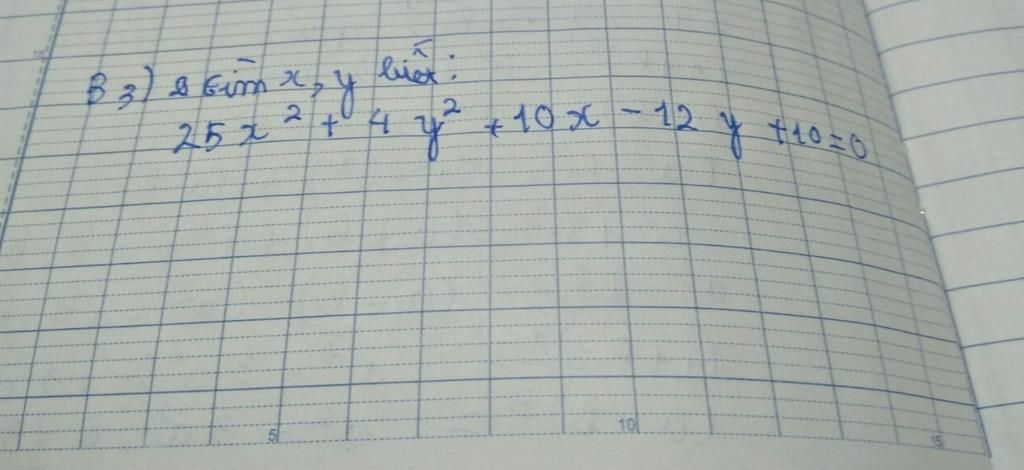 B3) tìm x, y biết:
25x² + 4y² + 10x - 12y + 10 = 0
5
10
15